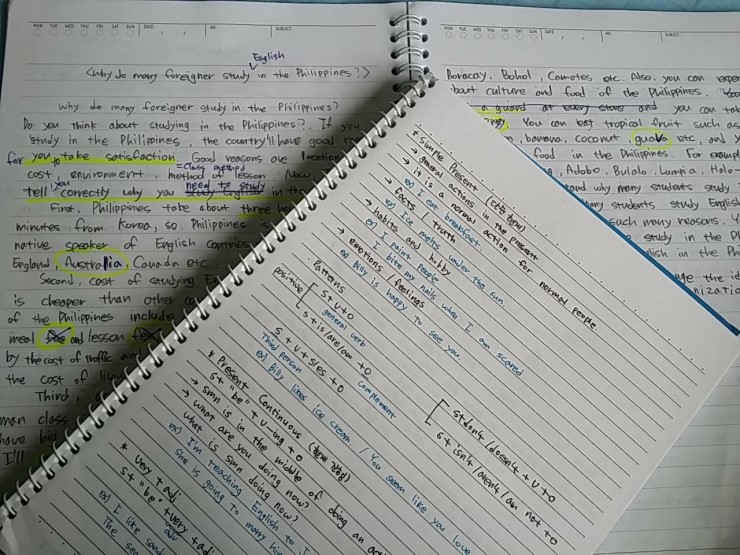 MON TUE WED THU FRI SAT SUN DATE NO. SUBJECT
English
<Why do many foreigner study in the Philippines?>
Why do many foreigner study in the Philippines?
Do you think about studying in the Philippines? If you
study in the Philippines, the country'll have good
for you to take satisfaction. Good reasons are location,
= Class method
cost, environment, method of lesson. Now
you need to study
tell correctly why you study English in the
First, Philippines take about three ho
minutes from Korea, so, Philippines
native speaker of English countries
England, Australia, Canada etc.
Second, cost of studying E
is cheaper than other co
of the Philippines include
meal and lesson
by the cost of traffic and
the cost of livi
Third, a
man class
have big
I'll
MON TUE WED THU FRI SAT SUN DATE NO. SUBJECT
Boracay, Bohol, Camotes etc. Also, you can exper
bout culture and food of the Philippines.
a guard at every store and you can tak
You can eat tropical fruit such as
, banana, coconut, guava etc, and y
food in the Philippines. For exampl
, Adobo, Bulalo, Lumpia, Halo-
tand why many students study
Many students study English
such many reasons. Y
study in the Ph
glish in the Phi
ge the id
nizatio
* Simple Present
→ general actions in the present
→ it is a normal action for normal people
ex) I eat breakfast
→ facts / truth
ex) Ice melts under the sun
→ habits and hobby
ex) I paint people
I bite my nails when I am scared
→ emotions / feelings
ex) Billy is happy to see you.
Patterns
positive
S + V + O
general verb
S + is/are/am + O
complement
S + V + s/es + O
Third person
ex) Billy likes ice cream / You seem like you love
S + don't/doesn't + V + O
S + isn't/aren't/am not + O
* Present Continuous
S + "be" + V-ing + O
→ smn is in the middle of doing an acti
→ what are you doing now?
what is smn doing now?
ex) I'm teaching English to J
She is going to marry hi
* very + adj
S + "be" + very + adj
ex) I like
The sea